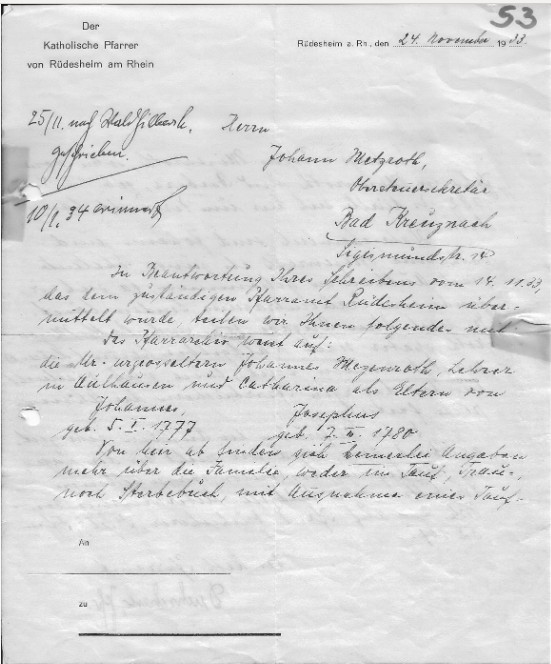 53
Der
Katholische Pfarrer
von Rüdesheim am Rhein
Rüdesheim a. Rh., den 24. November 1933.
25/11. nach
geschrieben.
10/1. 34 erinnert
Herrn
Johann Metzroth,
Obersteuersekretär
Bad Kreuznach
Sigismundstr. 14
In Beantwortung Ihres Schreibens vom 14.11.33,
das dem zuständigen Pfarramt Rüdesheim über-
mittelt wurde, teilen wir Ihnen folgendes mit
Das Pfarrarchiv weist auf:
die Ur-urgrosseltern Johannes Mezenroth, Lehrer
in Aulhausen und Catharina als Eltern von
Johannes, Josephus
geb. 5. I. 1777 geb. 7. 1780
Von hier ab finden sich keinerlei Angaben
mehr über die Familie, weder im Tauf-, Trau-,
noch Sterbebuch, mit Ausnahme eines Tauf-
An
zu